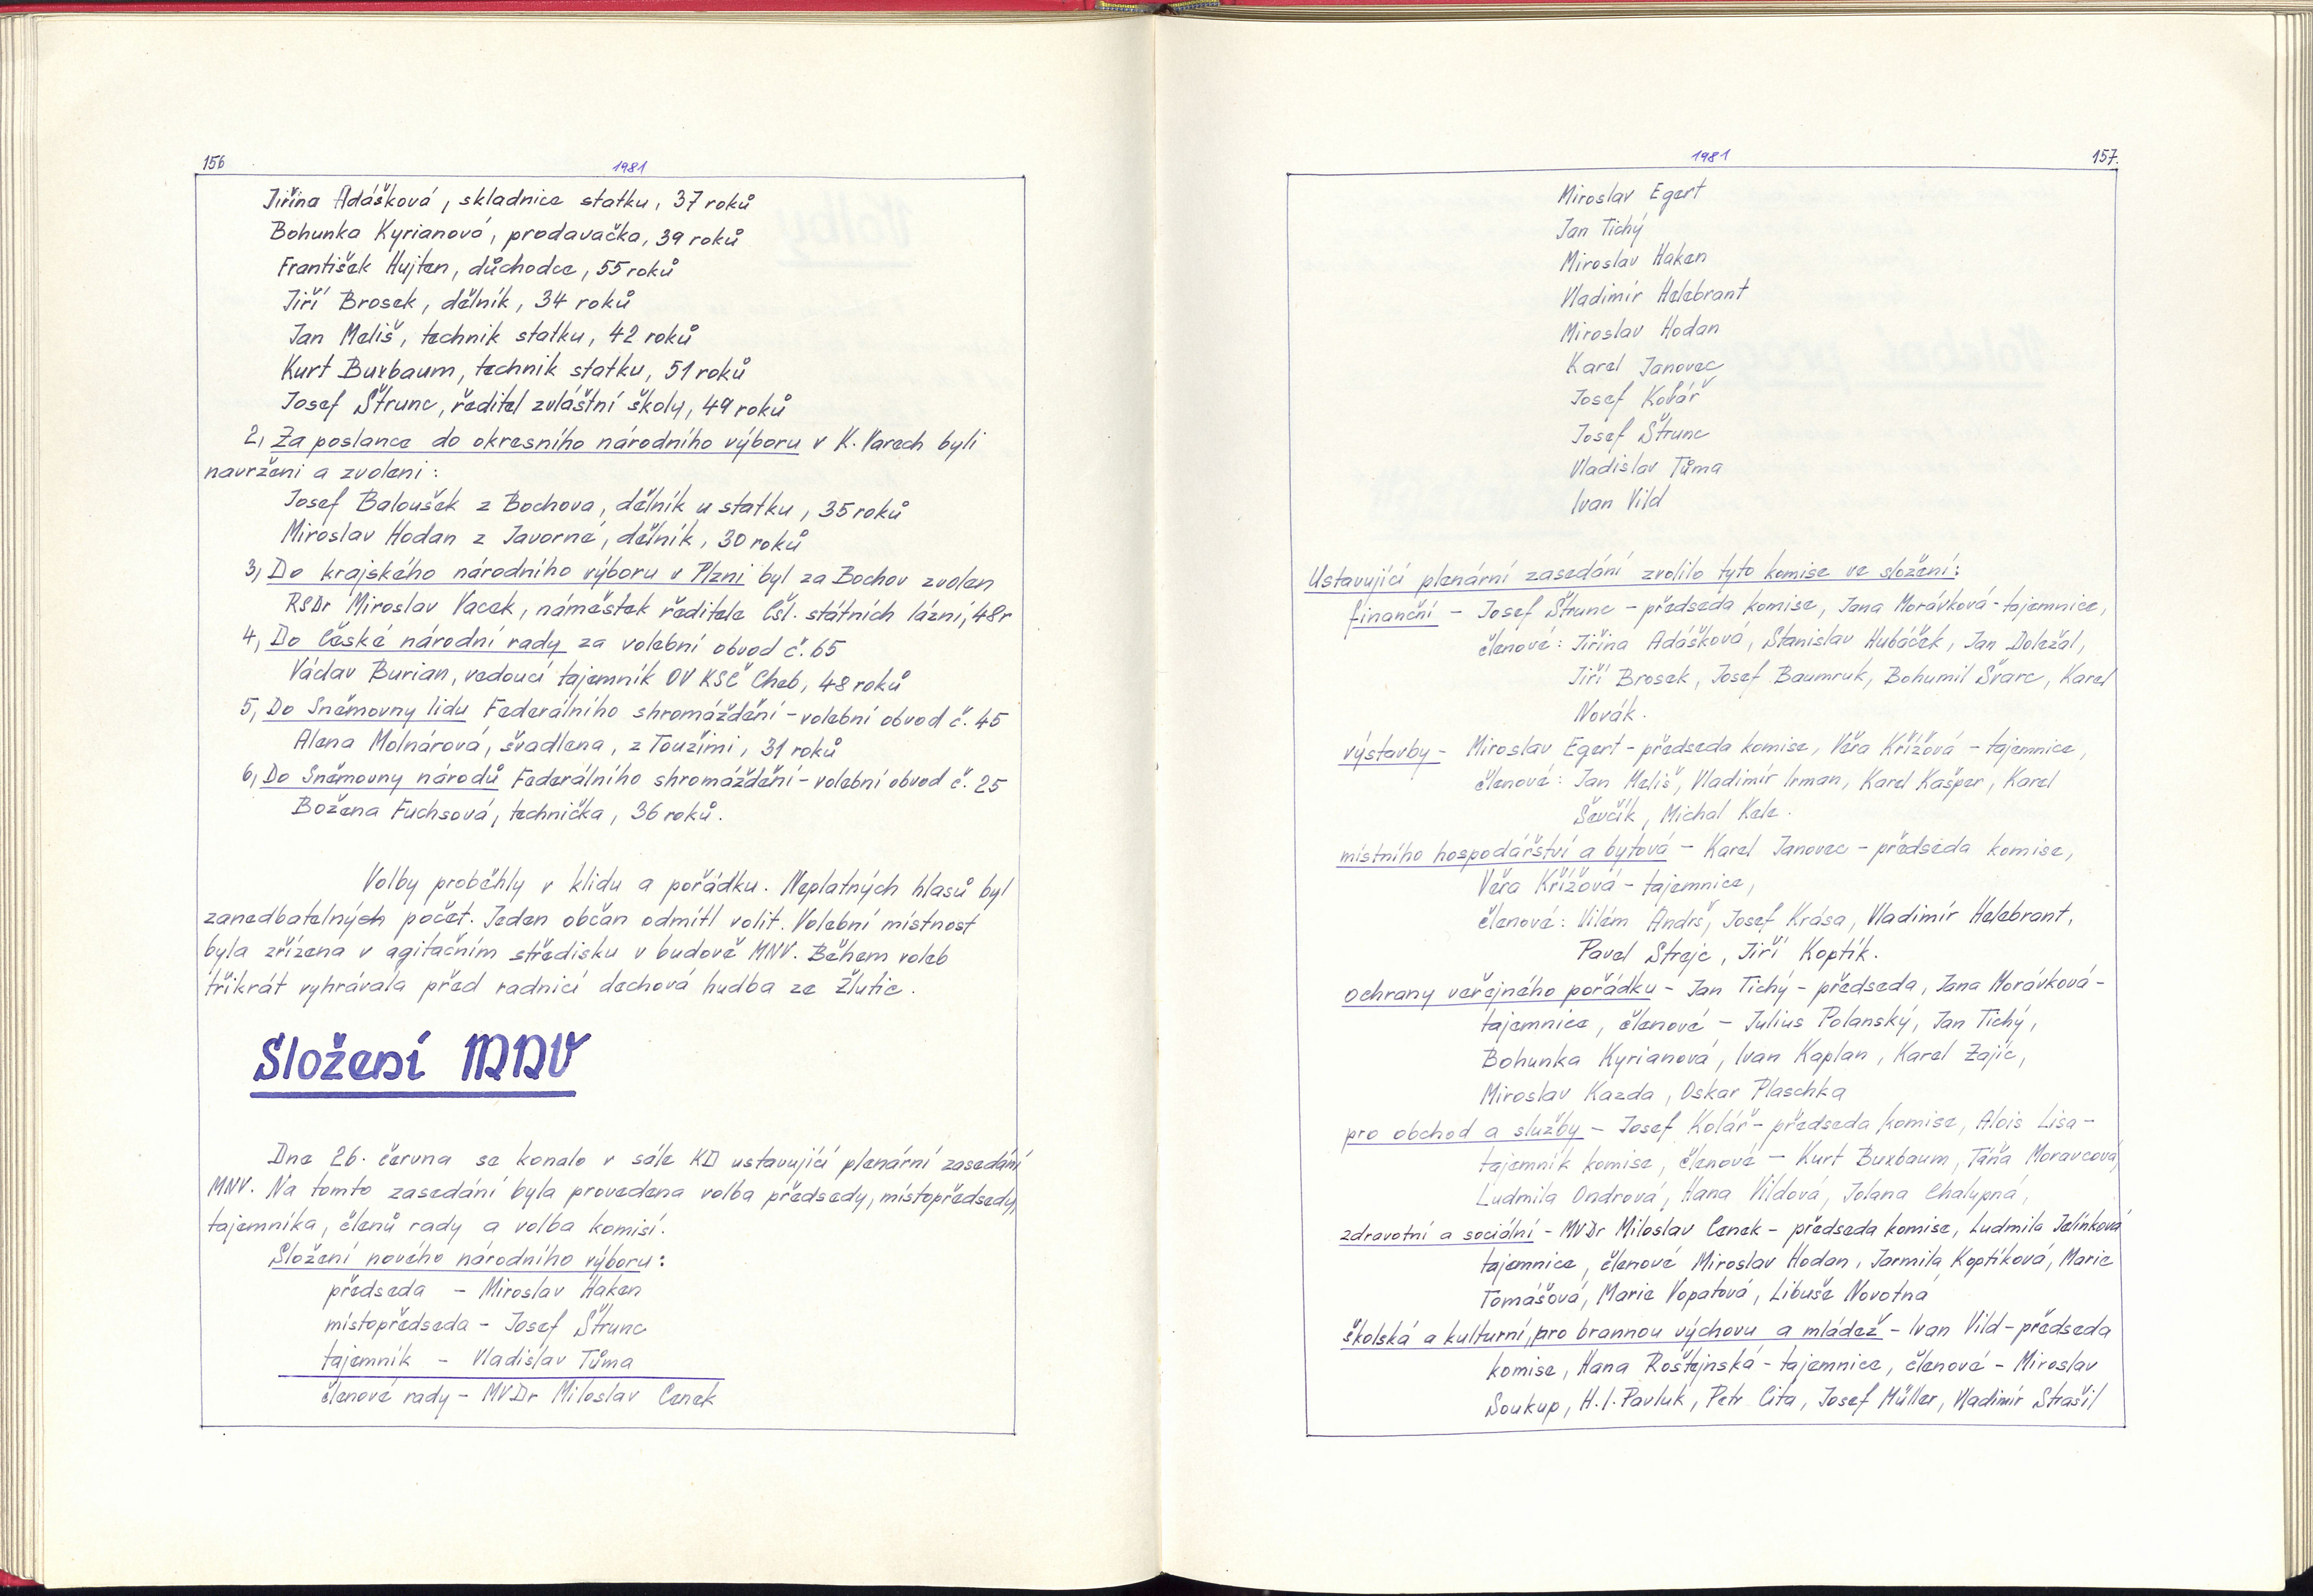 156
1981
Jiřina Adášková, skladnice statku, 37 roků
Bohunka Kyrianová, prodavačka, 39 roků
František Hujten, důchodce, 55 roků
Jiří Brosek, dělník, 34 roků
Jan Meliš, technik statku, 42 roků
Kurt Buxbaum, technik statku, 51 roků
Josef Štrunc, ředitel zvláštní školy, 49 roků
2, Za poslance do okresního národního výboru v K. Varech byli
navrženi a zvoleni:
Josef Baloušek z Bochova, dělník u statku, 35 roků
Miroslav Hodan z Javorné, dělník, 30 roků
3, Do krajského národního výboru v Plzni byl za Bochov zvolen
RSDr Miroslav Vacek, náměstek ředitele Čsl. státních lázní, 48 r
4, Do České národní rady za volební obvod č. 65
Václav Burian, vedoucí tajemník OV KSČ Cheb, 48 roků
5, Do Sněmovny lidu Federálního shromáždění - volební obvod č. 45
Alena Molnárová, švadlena, z Toužimi, 31 roků
6, Do Sněmovny národů Federálního shromáždění - volební obvod č. 25
Božena Fuchsová, technička, 36 roků.
Volby proběhly v klidu a pořádku. Neplatných hlasů byl
zanedbatelných počet. Jeden občan odmítl volit. Volební místnost
byla zřízena v agitačním středisku v budově MNV. Během voleb
třikrát vyhrávala před radnicí dechová hudba ze Žlutic.
Složení MNV
Dne 26. června se konalo v sále KD ustavující plenární zasedání
MNV. Na tomto zasedání byla provedena volba předsedy, místopředsedy,
tajemníka, členů rady a volba komisí.
Složení nového národního výboru:
předseda - Miroslav Haken
místopředseda - Josef Štrunc
tajemník - Vladislav Tůma
členové rady - MVDr Miloslav Cenek
1981
157.
Miroslav Egert
Jan Tichý
Miroslav Haken
Vladimír Helebrant
Miroslav Hodan
Karel Janovec
Josef Kolář
Josef Štrunc
Vladislav Tůma
Ivan Vild
Ustavující plenární zasedání zvolilo tyto komise ve složení:
finanční - Josef Štrunc - předseda komise, Jana Morávková - tajemnice,
členové: Jiřina Adášková, Stanislav Hubáček, Jan Doležal,
Jiří Brosek, Josef Baumruk, Bohumil Švarc, Karel
Novák.
výstavby - Miroslav Egert - předseda komise, Věra Křížová - tajemnice,
členové: Jan Meliš, Vladimír Irman, Karel Kašper, Karel
Ševčík, Michal Kele.
místního hospodářství a bytová - Karel Janovec - předseda komise,
Věra Křížová - tajemnice,
členové: Vilém Andrš, Josef Krása, Vladimír Helebrant,
Pavel Strejc, Jiří Koptík.
ochrany veřejného pořádku - Jan Tichý - předseda, Jana Morávková -
tajemnice, členové - Julius Polanský, Jan Tichý,
Bohunka Kyrianová, Ivan Kaplan, Karel Zajíc,
Miroslav Kazda, Oskar Plaschka
pro obchod a služby - Josef Kolář - předseda komise, Alois Lisa -
tajemník komise, členové - Kurt Buxbaum, Táňa Moravcová,
Ludmila Ondrová, Hana Vildová, Jolana Chalupná,
zdravotní a sociální - MVDr Miloslav Cenek - předseda komise, Ludmila Jelínková
tajemnice, členové Miroslav Hodan, Jarmila Koptíková, Marie
Tomášová, Marie Vopatová, Libuše Novotná
školská a kulturní, pro brannou výchovu a mládež - Ivan Vild - předseda
komise, Hana Roštejnská - tajemnice, členové - Miroslav
Soukup, H. I. Pavluk, Petr Cita, Josef Müller, Vladimír Strašil